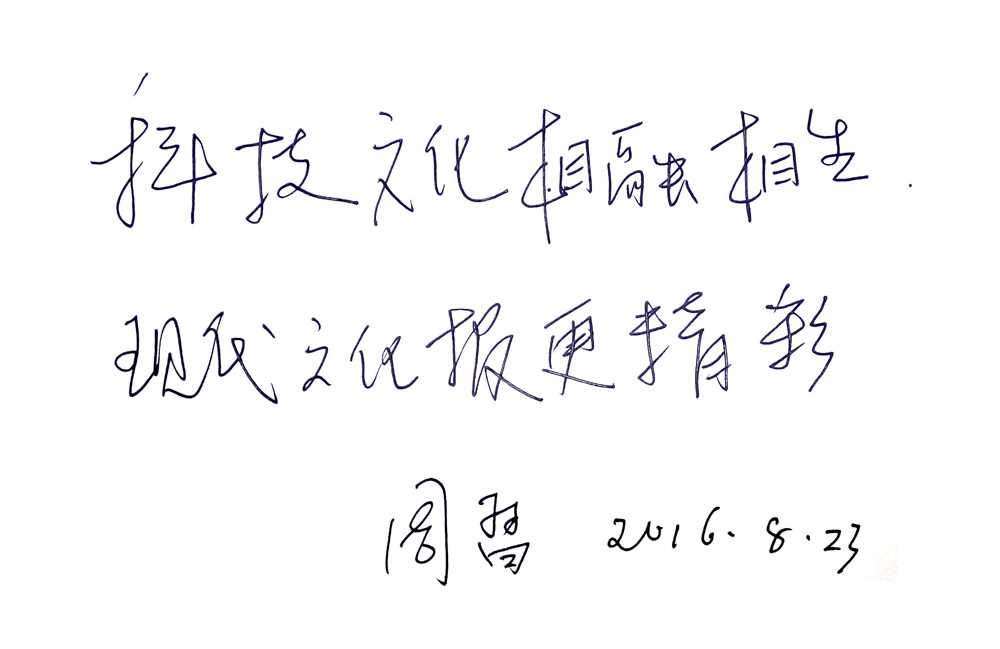 科技文化相融相生.
现代文化报更精彩
周哲 2016.8.23